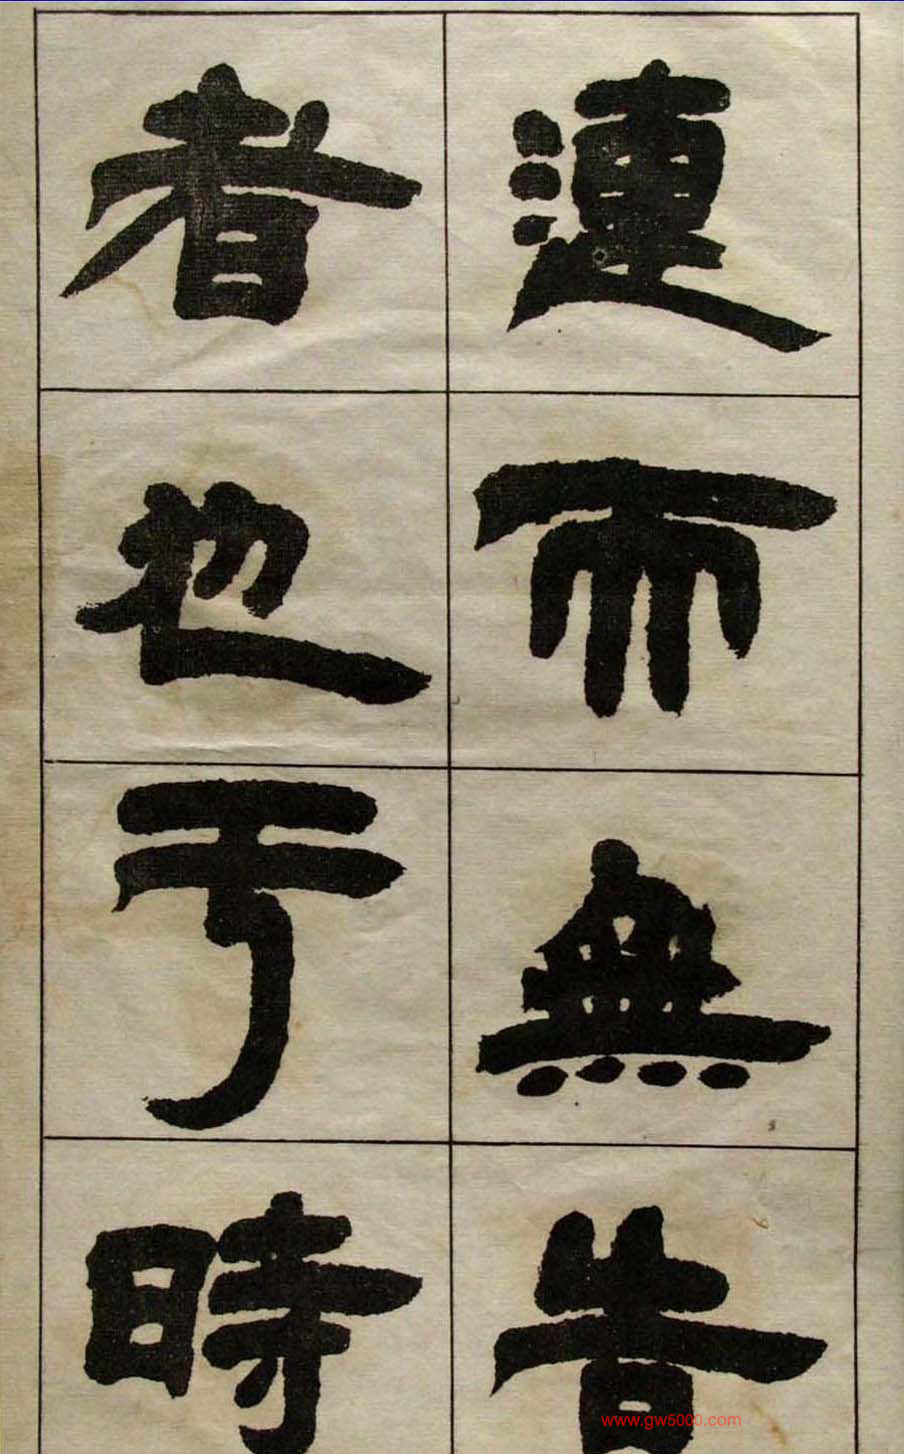 連而無告
者也于時
www.gw5000.com